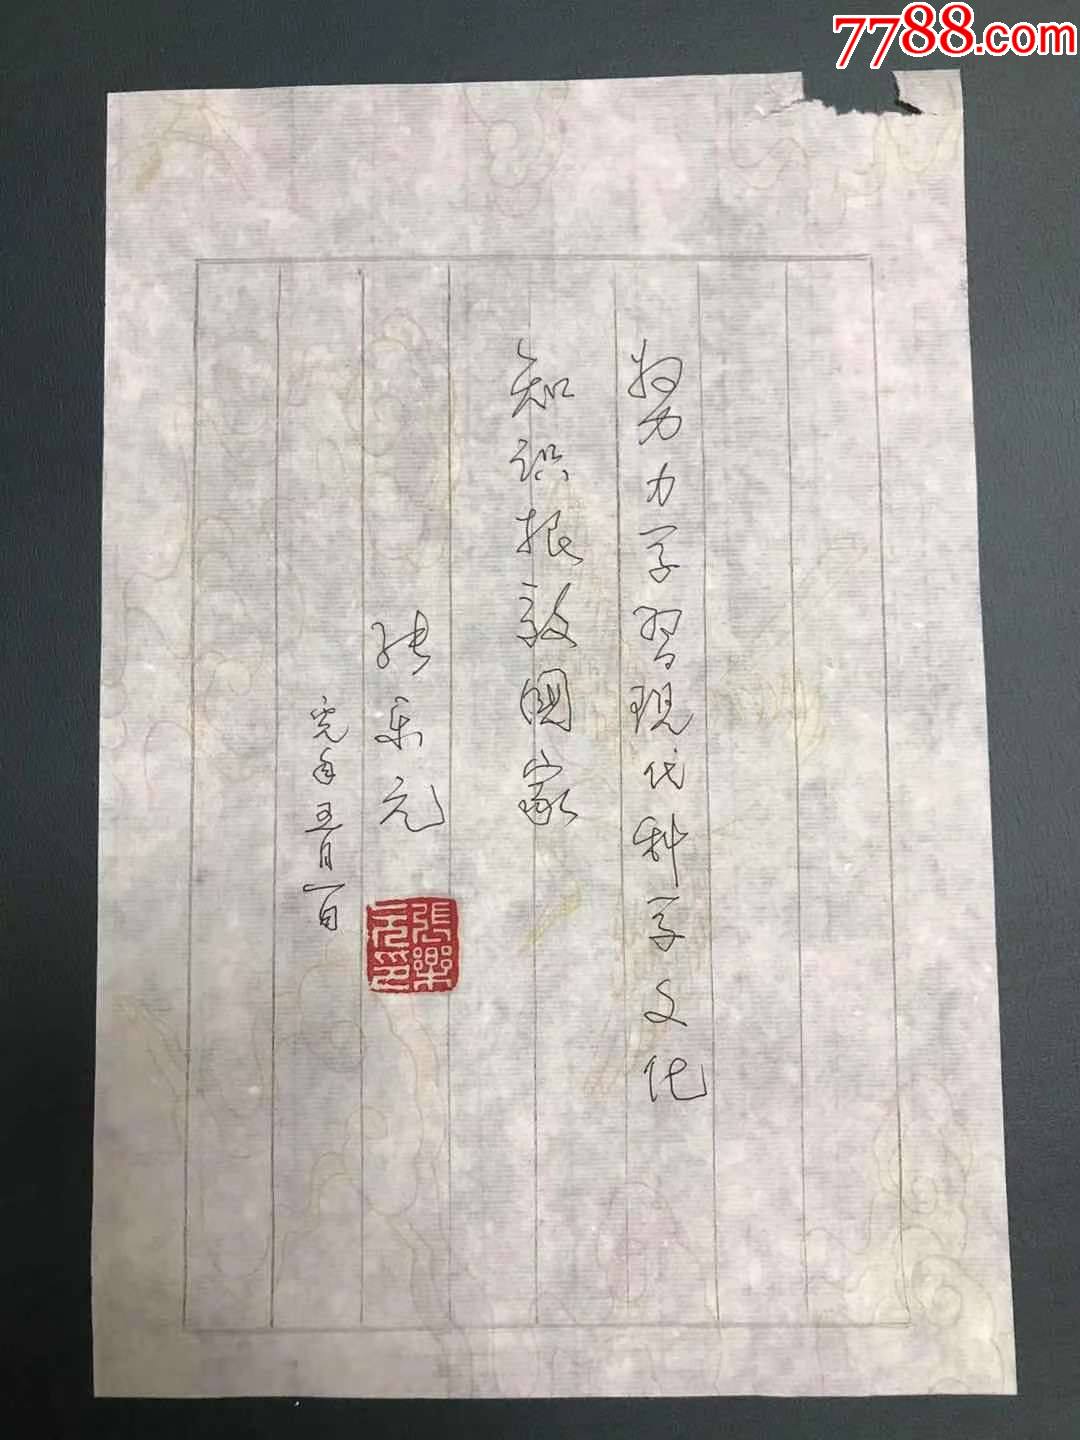 7788.com
努力学習現代科学文化
知识报效國家
张乐元
年五月一日
張樂元印